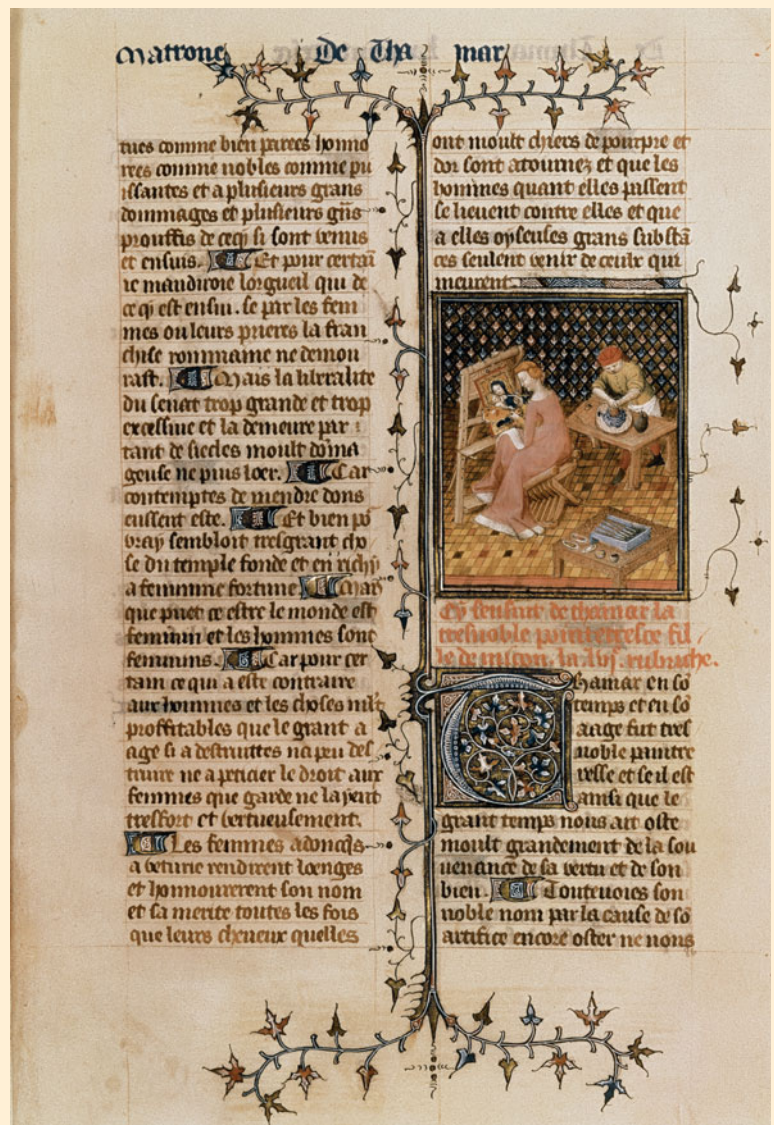 Matrone De Tha mar
tues comme bien parees honno
rees comme nobles comme pu
issantes et a plusieurs grans
dommages et plusieurs gñs
prouffis de ceqi si sont venus
et ensuis. Et pour certaī
ie maudiroie lorgueil qui de
ceqi est ensui. se par les fem
mes ou leurs prieres la fran
chise rommaine ne demou
rast. Mais la liberalite
du senat trop grande et trop
excessiue et la demeure par
tant de siecles moult doma
geuse ne puis loer. Car
contemptes de mendre dons
eussent este. Et bien po
vray sembloit tresgrant cho
se du temple fonde et
a feminine fortune Mais
que puet ce estre le monde est
feminin et les hommes sont
feminins. Car pour cer
tain ce qui a este contraire
aux hommes et les choses
proffitables que le grant a
age si a destruittes
le droit aux
femmes que garde ne layent
tresfort et vertueusement.
Les femmes adoncqs
a veturie rendirent loenges
et honnourerent son nom
et sa merite toutes les fois
que leurs cheueux quelles
ont moult chiers de pourpre et
dor sont atournez et que les
hommes quant elles passent
se lieuent contre elles et que
a elles oyseuses grans substā
ces seulent venir de ceulx qui
meurent.
Cy sensuit de thamar la
tresnoble painteresse fil
le de micon. la lvjᵉ. rubriche.
Thamar en sō
temps et en sō
aage fut tres
noble paintre
resse et se il est
ainsi que le
grant temps nous ait oste
moult grandement de la sou
uenance de sa vertu et de son
bien. Touteuoies son
noble nom par la cause de sō
artifice encore oster ne nous